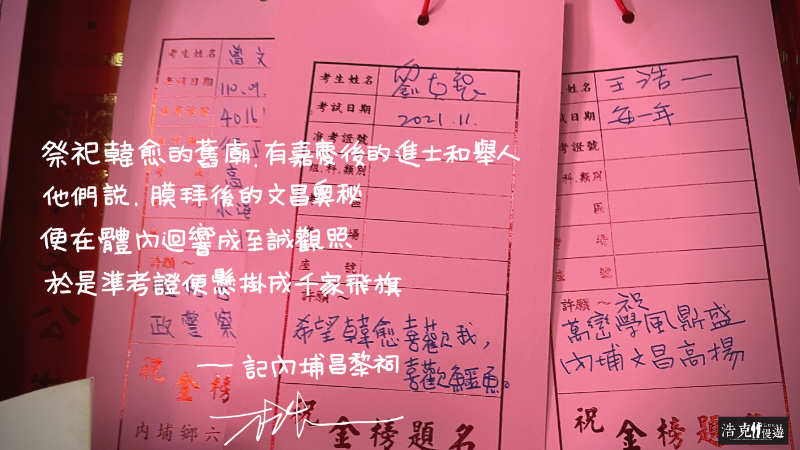 考生姓名 曾文
考試日期 110.09.
准考證號 4016
許願～
政警察
祝金榜
內埔鄉六
考生姓名
考試日期 2021.11.
准考證號
組.科.類別
區
場
座 號
許願～
希望韓愈喜歡我，
喜歡鱷魚。
祝
金榜題名
姓名 王浩一
日期 每一年
考證號
科.類別
區
場
號
許願～祝
萬巒學風鼎盛
內埔文昌高揚
祝
金榜題
祭祀韓愈的舊廟,有嘉慶後的進士和舉人
他們說，膜拜後的文昌奧秘
便在體內迴響成至誠觀照
於是準考證便懸掛成千家飛旗
— 記內埔昌黎祠
浩克慢遊